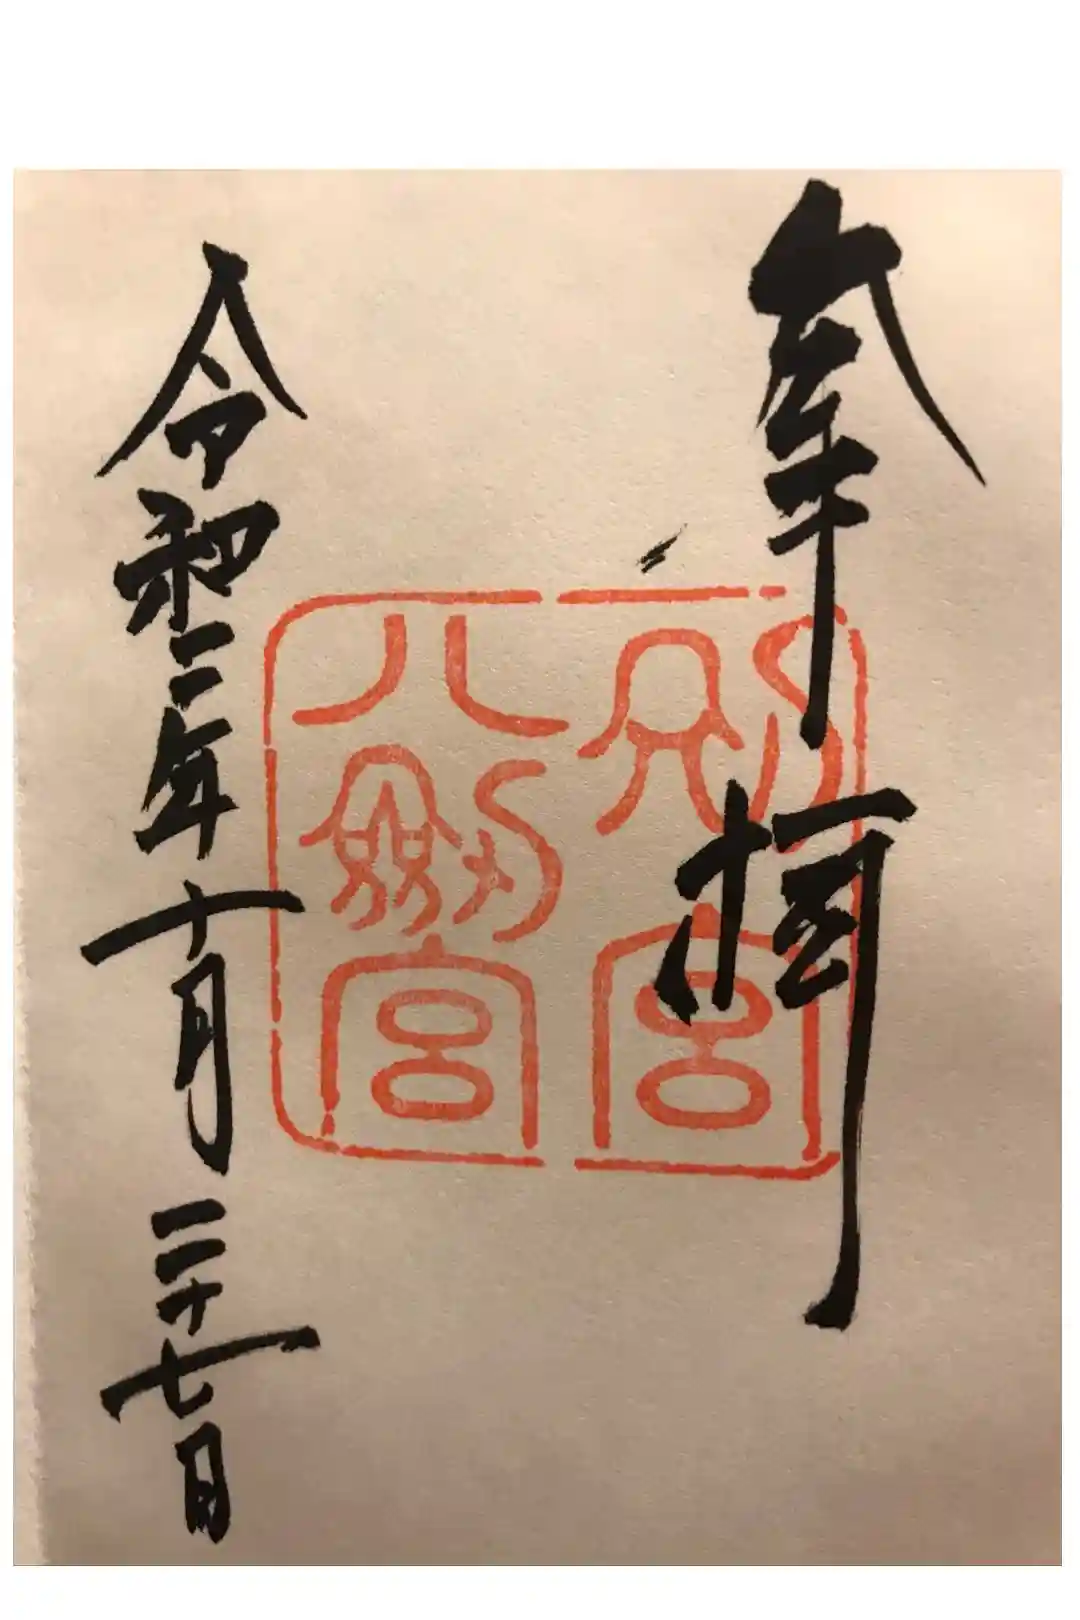 奉拝
別宮
八劔宮
令和二年十月二十七日